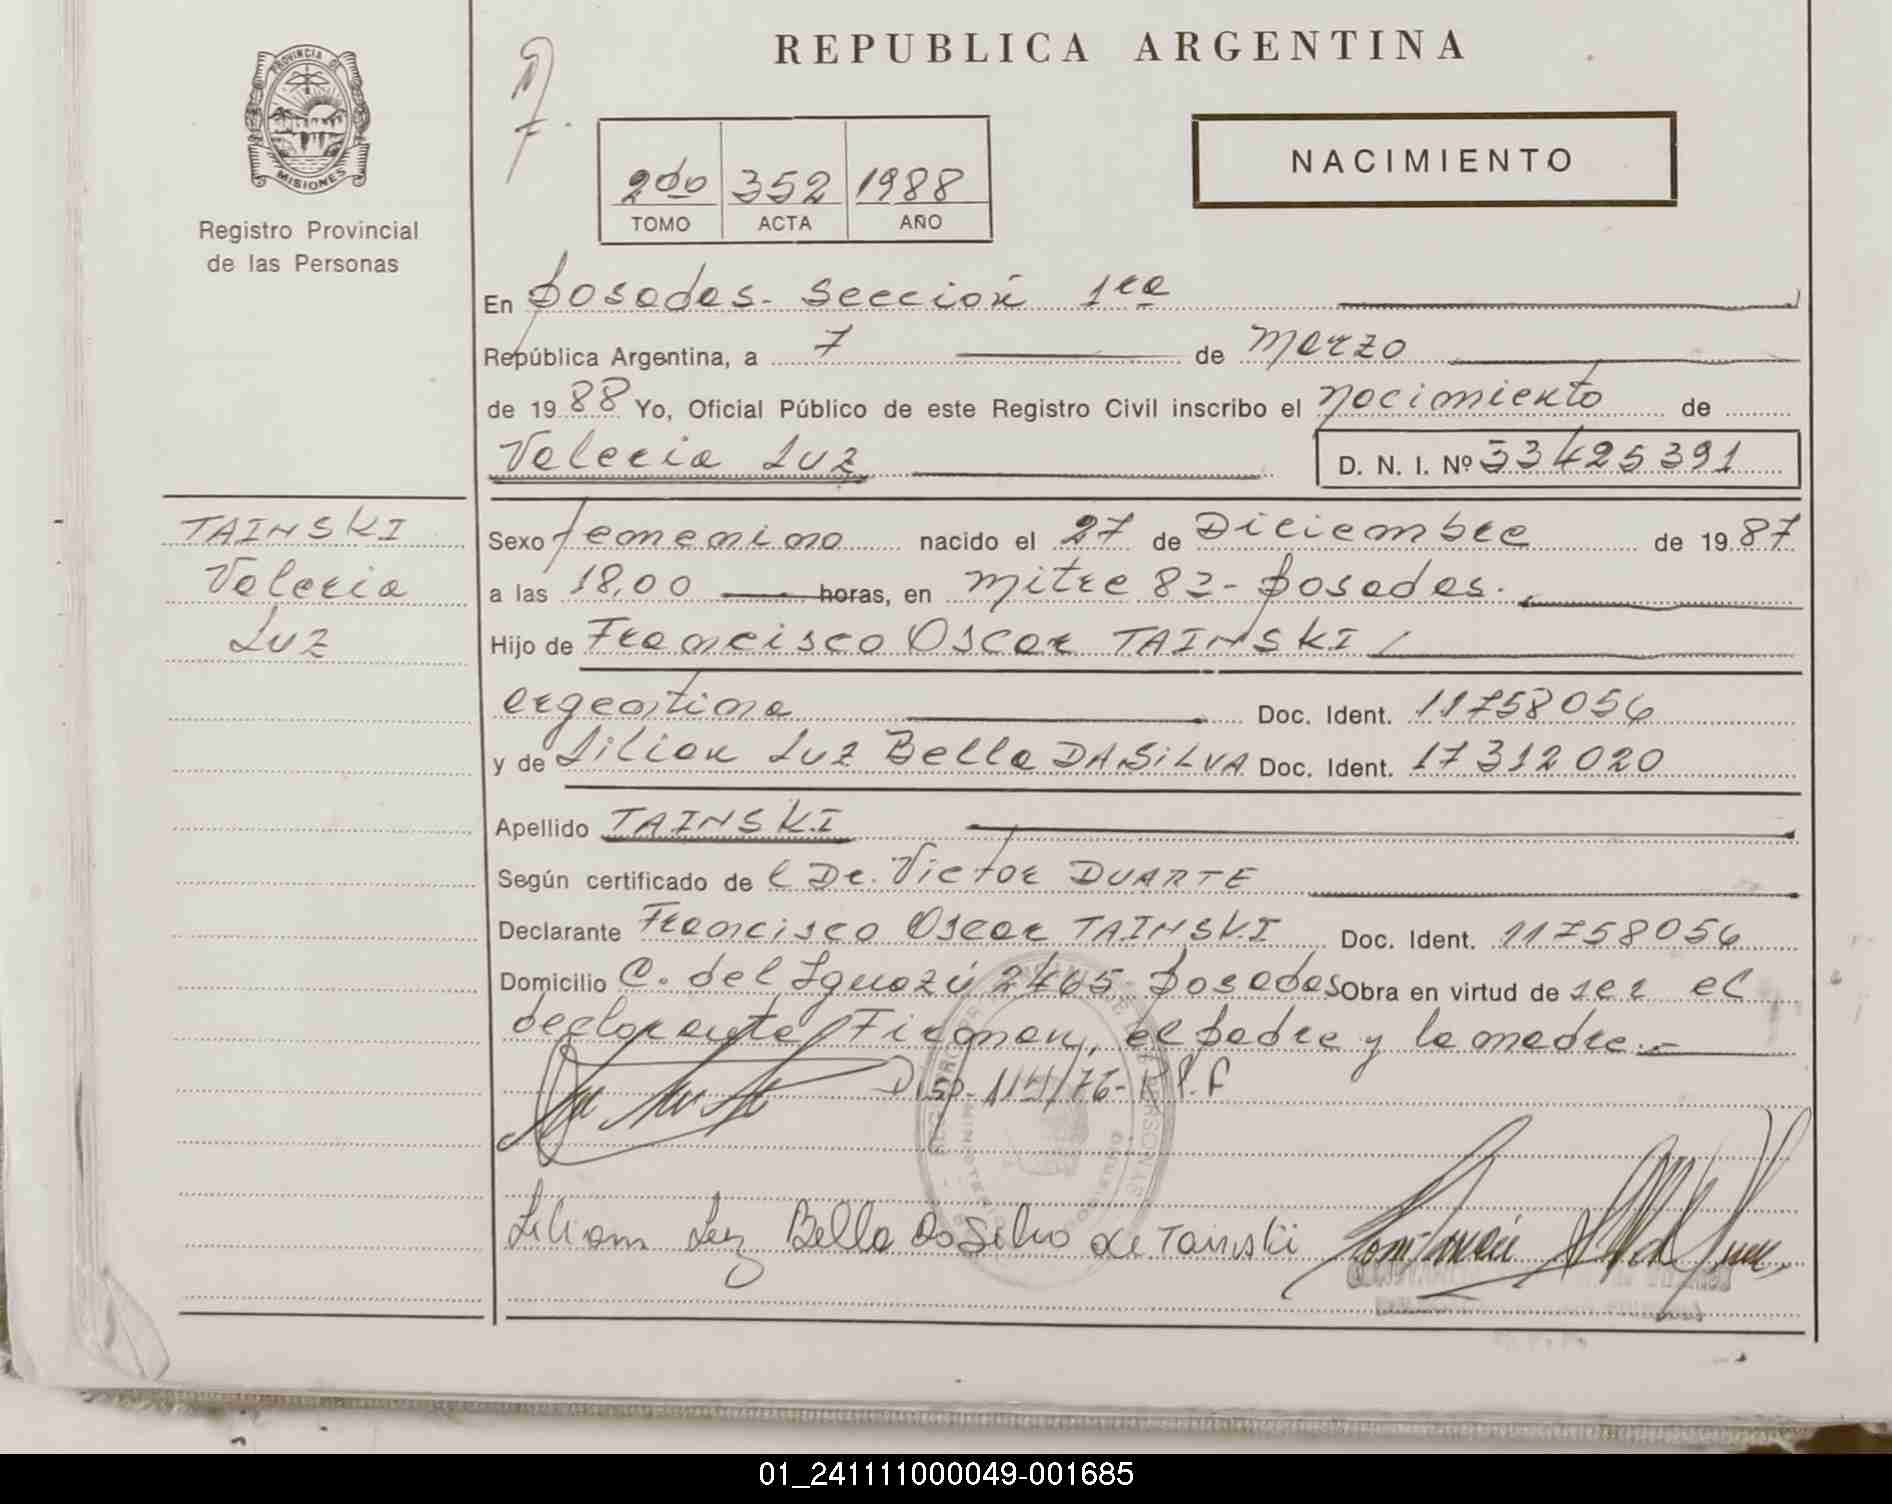 REPUBLICA ARGENTINA
PROVINCIA DE
MISIONES
Registro Provincial
de las Personas
2do 352 1988
TOMO ACTA AÑO
NACIMIENTO
En Posadas - Sección 1ra
República Argentina, a 7 de Marzo
de 1988 Yo, Oficial Público de este Registro Civil inscribo el nacimiento de
Valeria Luz D. N. I. Nº 33425391
TAINSKI
Valeria
Luz
Sexo femenino nacido el 27 de Diciembre de 1987
a las 18,00 horas, en Mitre 82 - Posadas.
Hijo de Francisco Oscar TAINSKI
argentino Doc. Ident. 11758056
y de Lilian Luz Bella DASILVA Doc. Ident. 17312020
Apellido TAINSKI
Según certificado del Dr. Victor DUARTE
Declarante Francisco Oscar TAINSKI Doc. Ident. 11758056
Domicilio C. del Iguazú 2465 - Posadas Obra en virtud de ser el
declarante Firman, el padre y la madre.-
Disp. 114/76 - R.P.P
Liliam Luz Bella DaSilva de Tainski
01_241111000049-001685